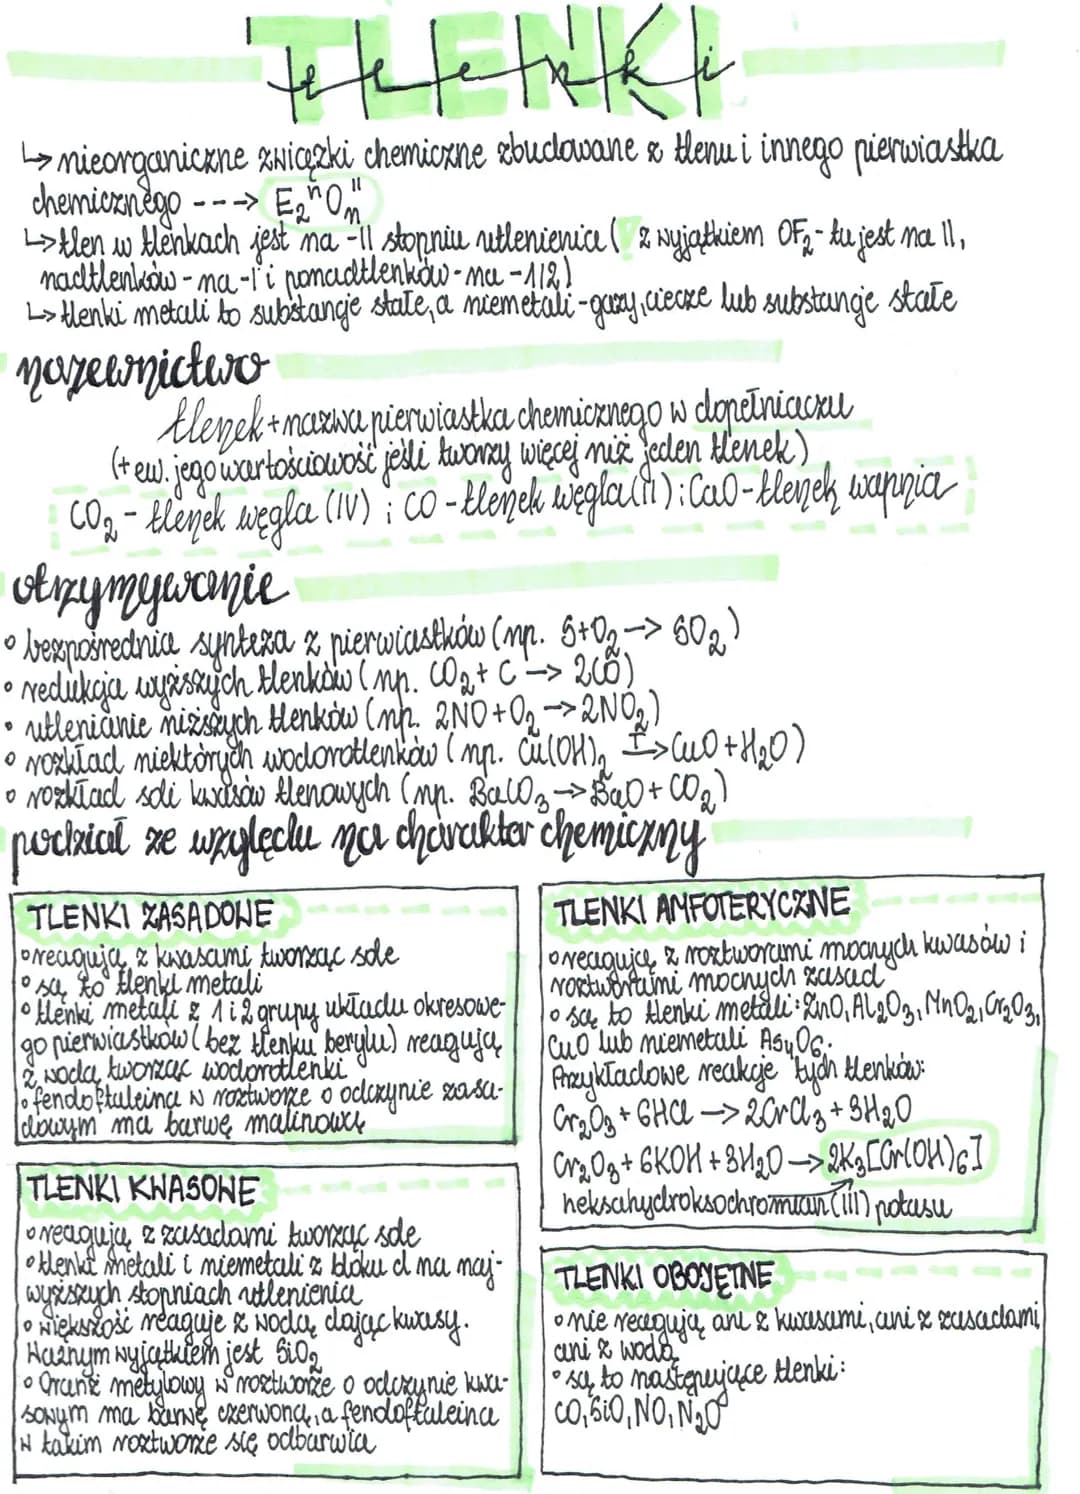 TLENKI
tlenki
↳ nieorganiczne związki chemiczne zbudowane z tlenu i innego pierwiastka
chemicznego ---> E₂ⁿOₙᴵᴵ
↳ tlen w tlenkach jest na -II stopniu utlenienia (z wyjątkiem OF₂ - tu jest na II,
nadtlenków - na -I i ponadtlenków - na -1/2)
↳ tlenki metali to substancje stałe, a niemetali - gazy, ciecze lub substancje stałe
nazewnictwo
tlenek + nazwa pierwiastka chemicznego w dopełniaczu
(+ ew. jego wartościowość jeśli tworzy więcej niż jeden tlenek)
CO₂ - tlenek węgla (IV) ; CO - tlenek węgla (II) ; CaO - tlenek wapnia
otrzymywanie
• bezpośrednia synteza z pierwiastków (np. S+O₂ -> SO₂)
• redukcja wyższych tlenków (np. CO₂ + C -> 2CO)
• utlenianie niższych tlenków (np. 2NO+O₂ -> 2NO₂)
• rozkład niektórych wodorotlenków (np. Cu(OH)₂ -T-> CuO + H₂O)
• rozkład soli kwasów tlenowych (np. BaCO₃ -> BaO + CO₂)
podział ze względu na charakter chemiczny
TLENKI ZASADOWE
• reagują z kwasami tworząc sole
• są to tlenki metali
• tlenki metali z 1 i 2 grupy układu okresowe-
go pierwiastków (bez tlenku berylu) reagują
z wodą tworząc wodorotlenki
• fenoloftaleina w roztworze o odczynie zasa-
dowym ma barwę malinową
TLENKI KWASOWE
• reagują z zasadami tworząc sole
• tlenki metali i niemetali z bloku d na naj-
wyższych stopniach utlenienia
• większość reaguje z wodą, dając kwasy.
Ważnym wyjątkiem jest SiO₂
• Oranż metylowy w roztworze o odczynie kwa-
sowym ma barwę czerwoną, a fenoloftaleina
w takim roztworze się odbarwia
TLENKI AMFOTERYCZNE
• reagują z roztworami mocnych kwasów i
roztworami mocnych zasad
• są to tlenki metali: ZnO, Al₂O₃, MnO₂, Cr₂O₃,
CuO lub niemetali As₄O₆.
Przykładowe reakcje tych tlenków:
Cr₂O₃ + 6HCl -> 2CrCl₃ + 3H₂O
Cr₂O₃ + 6KOH + 3H₂O -> 2K₃[Cr(OH)₆]
heksahydroksochromian (III) potasu
TLENKI OBOJĘTNE
• nie reagują ani z kwasami, ani z zasadami,
ani z wodą
• są to następujące tlenki:
CO, SiO, NO, N₂O